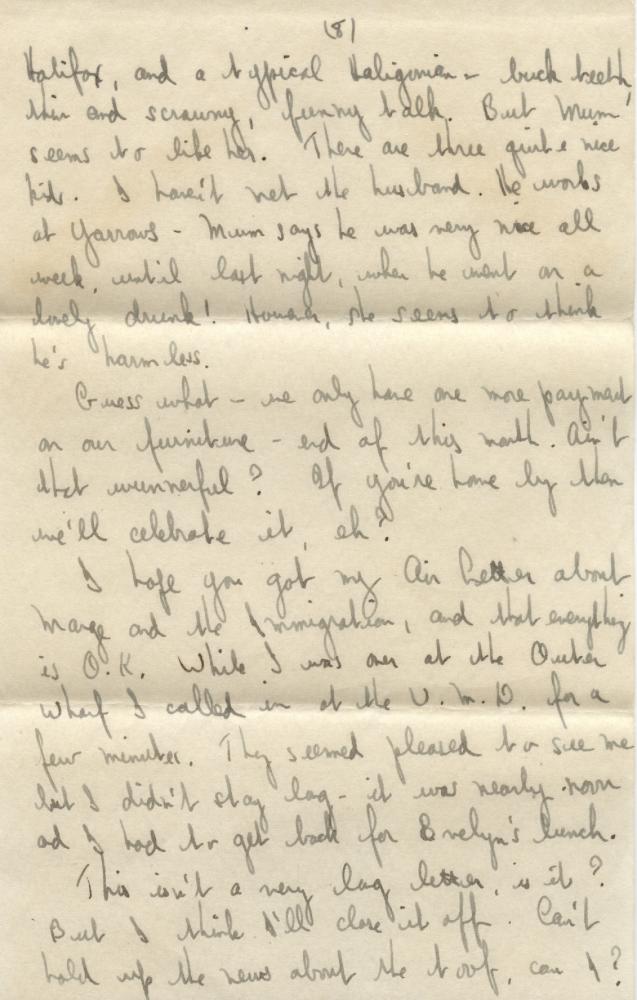 (8)
Halifax, and a typical Haligonian - buck teeth,
thin and scrawny, funny talk. But Mum
seems to like her. There are three quite nice
kids. I haven't met the husband. He works
at Yarrows - Mum says he was very nice all
week, until last night, when he went on a
lovely drunk! However, she seems to think
he's harmless.
Guess what - we only have one more payment
on our furniture - end of this month. Ain't
that wunnerful? If you're home by then
we'll celebrate it, eh?
I hope you got my Air Letter about
Marge and the Immigration, and that everything
is O.K. While I was over at the Outer
Wharf I called in at the V.M.D. for a
few minutes. They seemed pleased to see me
but I didn't stay long - it was nearly noon
and I had to get back for Evelyn's lunch.
This isn't a very long letter, is it?
But I think I'll close it off. Can't
hold up the news about the toof, can I?